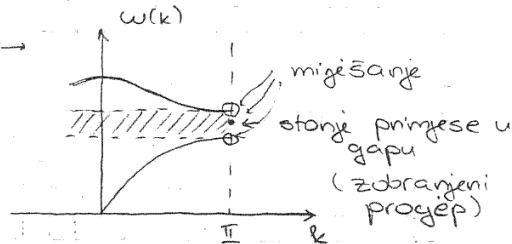 ω(k)
miješanje
stanje primjese u
gapu
(zabranjeni
procjep)
π
k